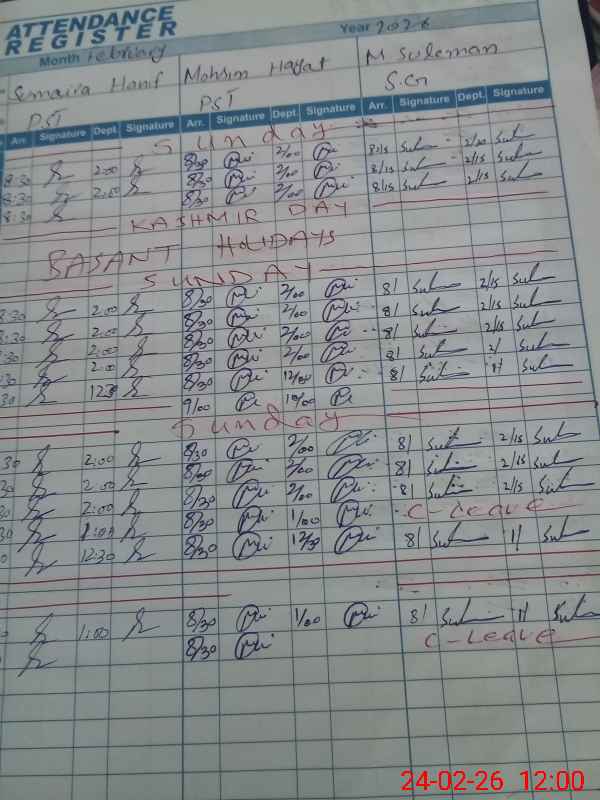 ATTENDANCE
REGISTER
Year 2026
Month February
Sumaira Hanif Mohsin Hayat M Suleman
PST PST S.G
Arr. Signature Dept. Signature Arr. Signature Dept. Signature Arr. Signature Dept. Signature
Sunday
8:30 2:00 8/30 2/00 8/15 2/00
8:30 2:00 8/30 2/00 8/15 2/15
8:30 8/30 2/00 8/15 2/15
KASHMIR DAY
BASANT HOLIDAYS
SUNDAY
8:30 2:00 8/30 2/00 8/ 2/15
8:30 2:00 8/30 2/00 8/ 2/15
:30 2:00 8/30 2/00 8/ 2/15
:30 2:00 8/30 2/00 8/ 2/
30 12:30 8/30 12/00 8/ 1/
9/00 10/00
Sunday
30 2:00 8/30 2/00 8/ 2/15
30 2:00 8/00 2/00 8/ 2/15
30 2:00 8/30 2/00 8/ 2/15
30 1:00 8/30 1/00 C-Leave
0 12:30 8/30 12/30 8/ 1/
1:00 8/30 1/00 8/ 1/
8/30 C-Leave
24-02-26 12:00